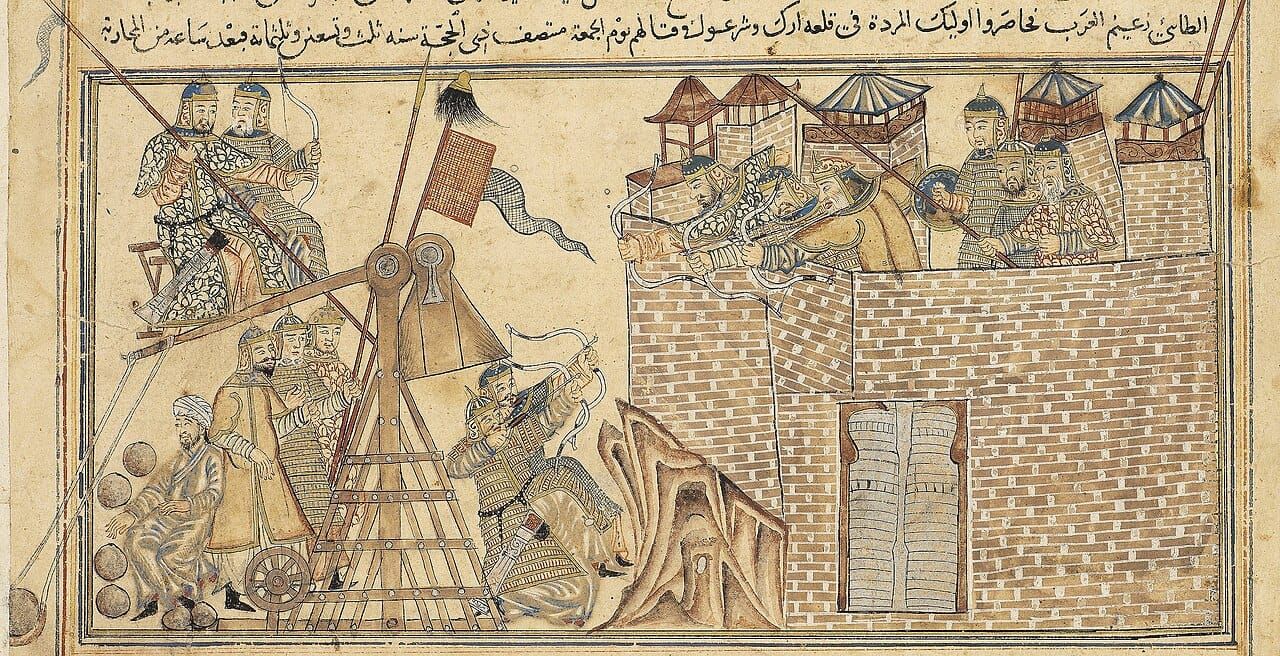 الطائي زعيم العرب فحاصروا اوليك المردة في قلعه ارك وشرعوا في قتالهم يوم الجمعة منتصف ذي الحجة سنه ثلث وتسعين وثلثماية فبعد ساعه من المحاربة